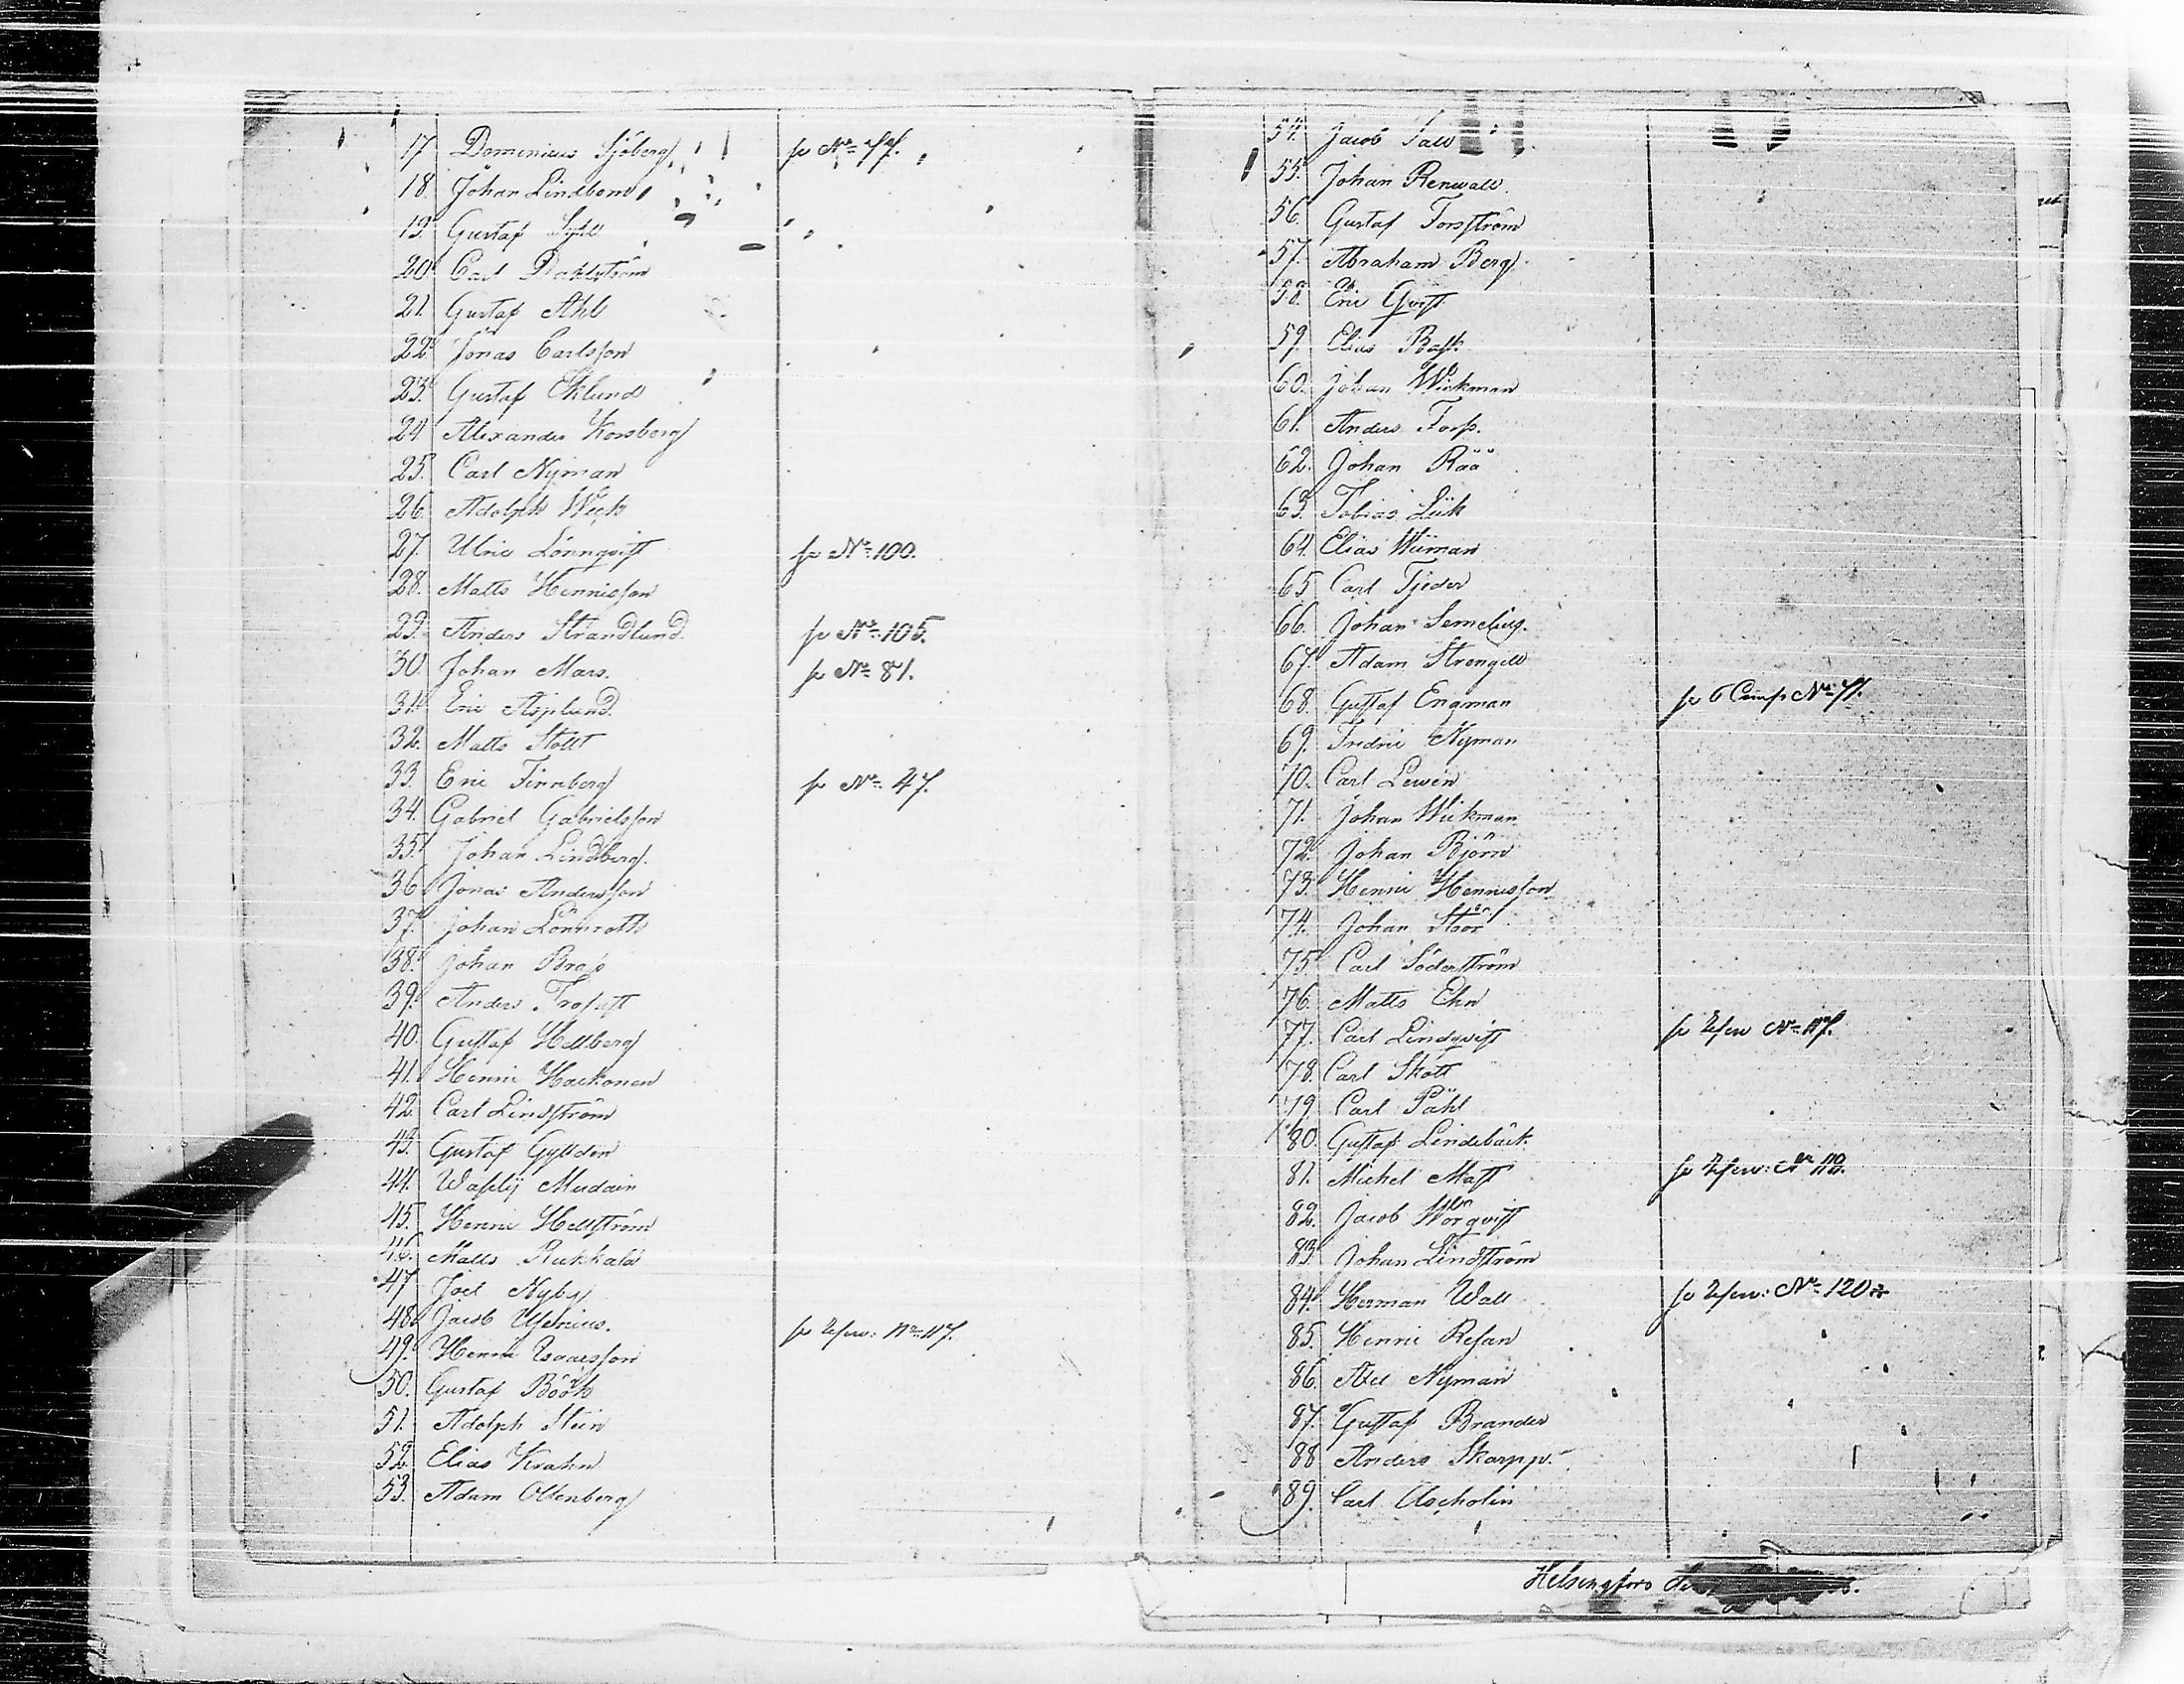 17 Dominicus Sjöberg se No 77.
18. Johan Lindbom
19. Gustaf
20 Carl Dahlström
21. Gustaf Ahl
22. Jonas Carlsson
23. Gustaf Eklund
24 Alexander Korsberg
25. Carl Nyman
26. Adolph Wick
27. Ulric Lönnqvist se No 100.
28. Matts Hennisson
29. Anders Strandlund. se No 105.
30. Johan Mars. se No 81.
31. Eric Asplund.
32. Matts Stolt
33. Eric Finnberg se No 47.
34. Gabriel Gabrielsson
35. Johan Lindberg.
36 Jonas Andersson
37. Johan Lönnroth
38. Johan Brass
39. Anders
40. Gustaf Hellberg
41. Henric
42. Carl Lindström
43. Gustaf Gyllden
44. Wasilij
45. Henric Hellström
46. Matts
47 Joel Nyby
48. Jacob
49. Henric Isacsson No 117.
50. Gustaf Böök
51. Adolph Stein
52. Elias Krahn
53. Adam Ottenberg
54. Jacob Tall
55. Johan Renwall.
56. Gustaf Forsström
57. Abraham Berg
58. Eric Qvist
59. Elias Bask
60. Johan Wickman
61. Anders Forss.
62. Johan Rää
63. Tobias
64. Elias Wiiman
65 Carl Tjeder
66. Johan Semelius.
67. Adam Strengell
68. Gustaf Engman se 6 Comp No 71.
69. Fredric Nyman
70. Carl Lewin
71. Johan Wickman
72. Johan Björn
73. Henric Hennisson
74. Johan Stöör
75. Carl Söderström
76. Matts Ehn
77. Carl Lindqvist se No 117.
78. Carl Skött
79. Carl Påhl
80. Gustaf Lindebäck.
81. Michel Mast se No 110.
82. Jacob Wörqvist
83. Johan Lindström
84. Herman Wall se No 120
85. Henric
86. Axel Nyman
87. Gustaf Brander
88 Anders Skarpp.
89. Carl Ascholin
Helsingfors